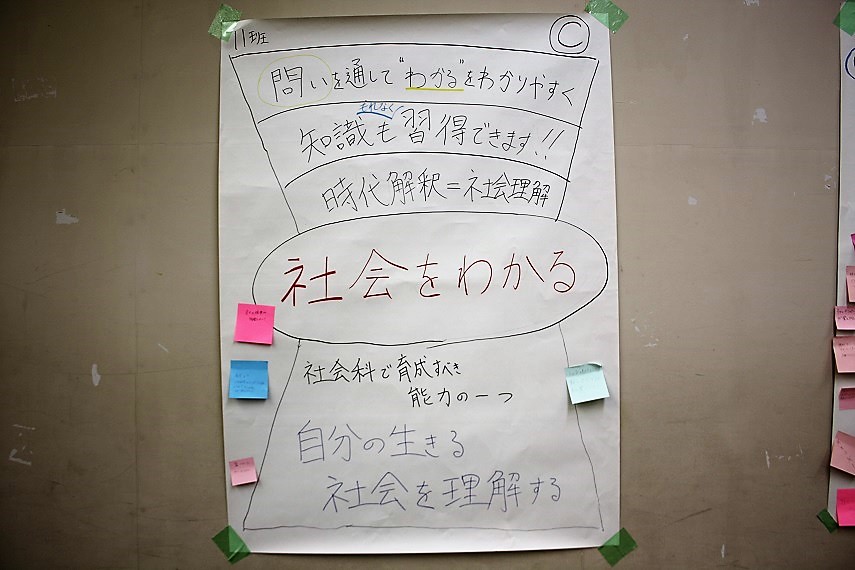 11班
Ⓒ
問いを通して"わかる"をわかりやすく
もれなく
知識も習得できます!!
時代解釈=社会理解
社会をわかる
社会科で育成すべき
能力の一つ
自分の生きる
社会を理解する